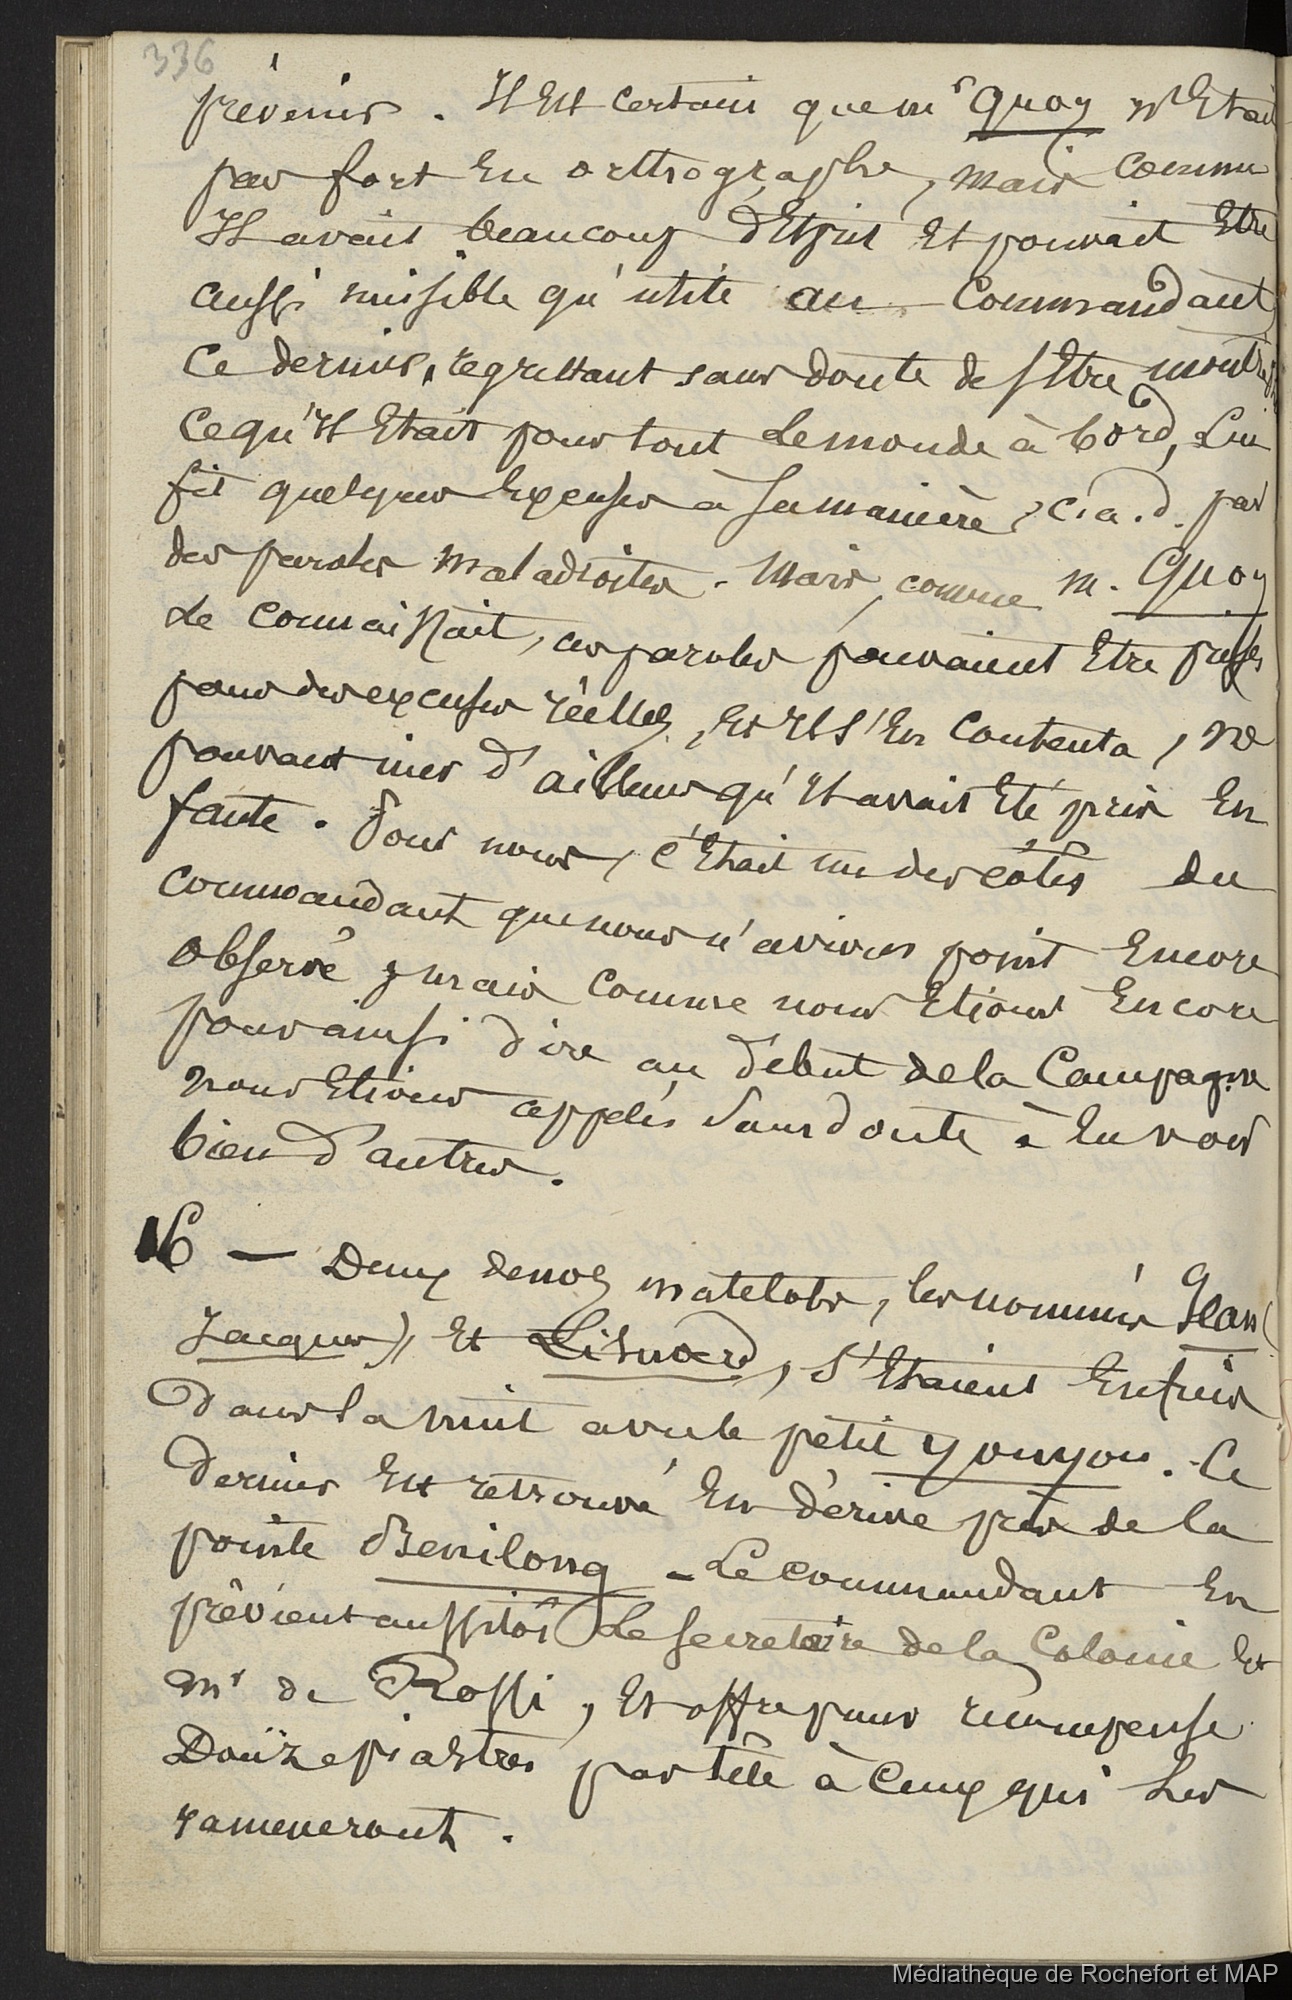 336
prévenir. Il Est certain que mr Quoy N'Etait
pas fort En orthographe, mais comme
Il avait beaucoup d'Esprit Et pouvait Etre
aussi nuisible qu'utile au Commandant,
Ce dernier, regrettant sans doute de s'Etre montré
ce qu'Il Etait pour tout Le monde à bord, Lui
fit quelques Excuses à sa manière, c.a.d. par
des paroles maladroites. Mais, comme m. Quoy
Le connaissait, ces paroles pouvaient Etre prises
pour des excuses réelles, Et Il s'En contenta, ne
pouvant nier d'ailleurs qu'Il avait Eté pris En
faute. Pour nous, c'Etait un des côtés du
commandant que nous n'avions point Encore
observé, mais comme nous Etions Encore
pour ainsi dire au début de la Campagne
nous Etions appelés sans doute à En voir
bien d'autres.
16 — Deux de nos matelots, les nommés Jean (
Jacques), Et Lisnard, s'Etaient Enfuis
Dans la nuit avec le petit youyou. Ce
dernier Est retrouvé En dérive près de la
pointe Benilong - Le commandant En
prévient aussitôt Le secretaire de la Colonie Et
mr de Rossi, Et offre pour récompense
Douze piastres par tête à Ceux qui Les
rameneront.
Médiathèque de Rochefort et MAP